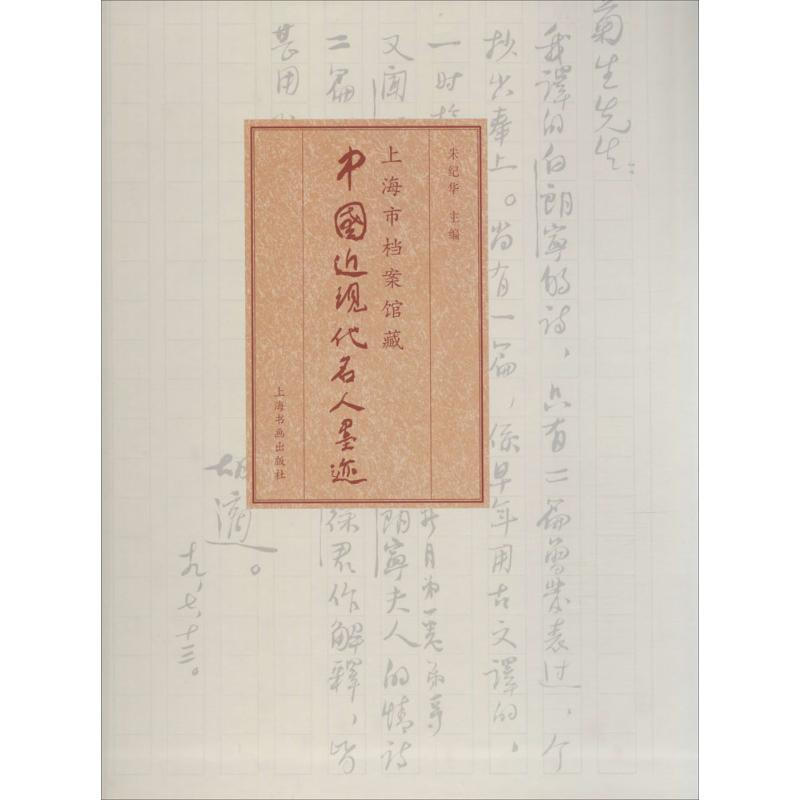 菊生先生：
我譯的白朗寧的詩，只有二篇曾發表过，今
抄出奉上。尚有一篇，係早年用古文譯的，
一时
月第一卷
又
朗寧夫人的情詩
二篇
徐君作解釋，皆
甚用
胡適。
九、七、十三。
朱纪华 主编
上海市档案馆藏
中國近现代名人墨迹
上海书画出版社